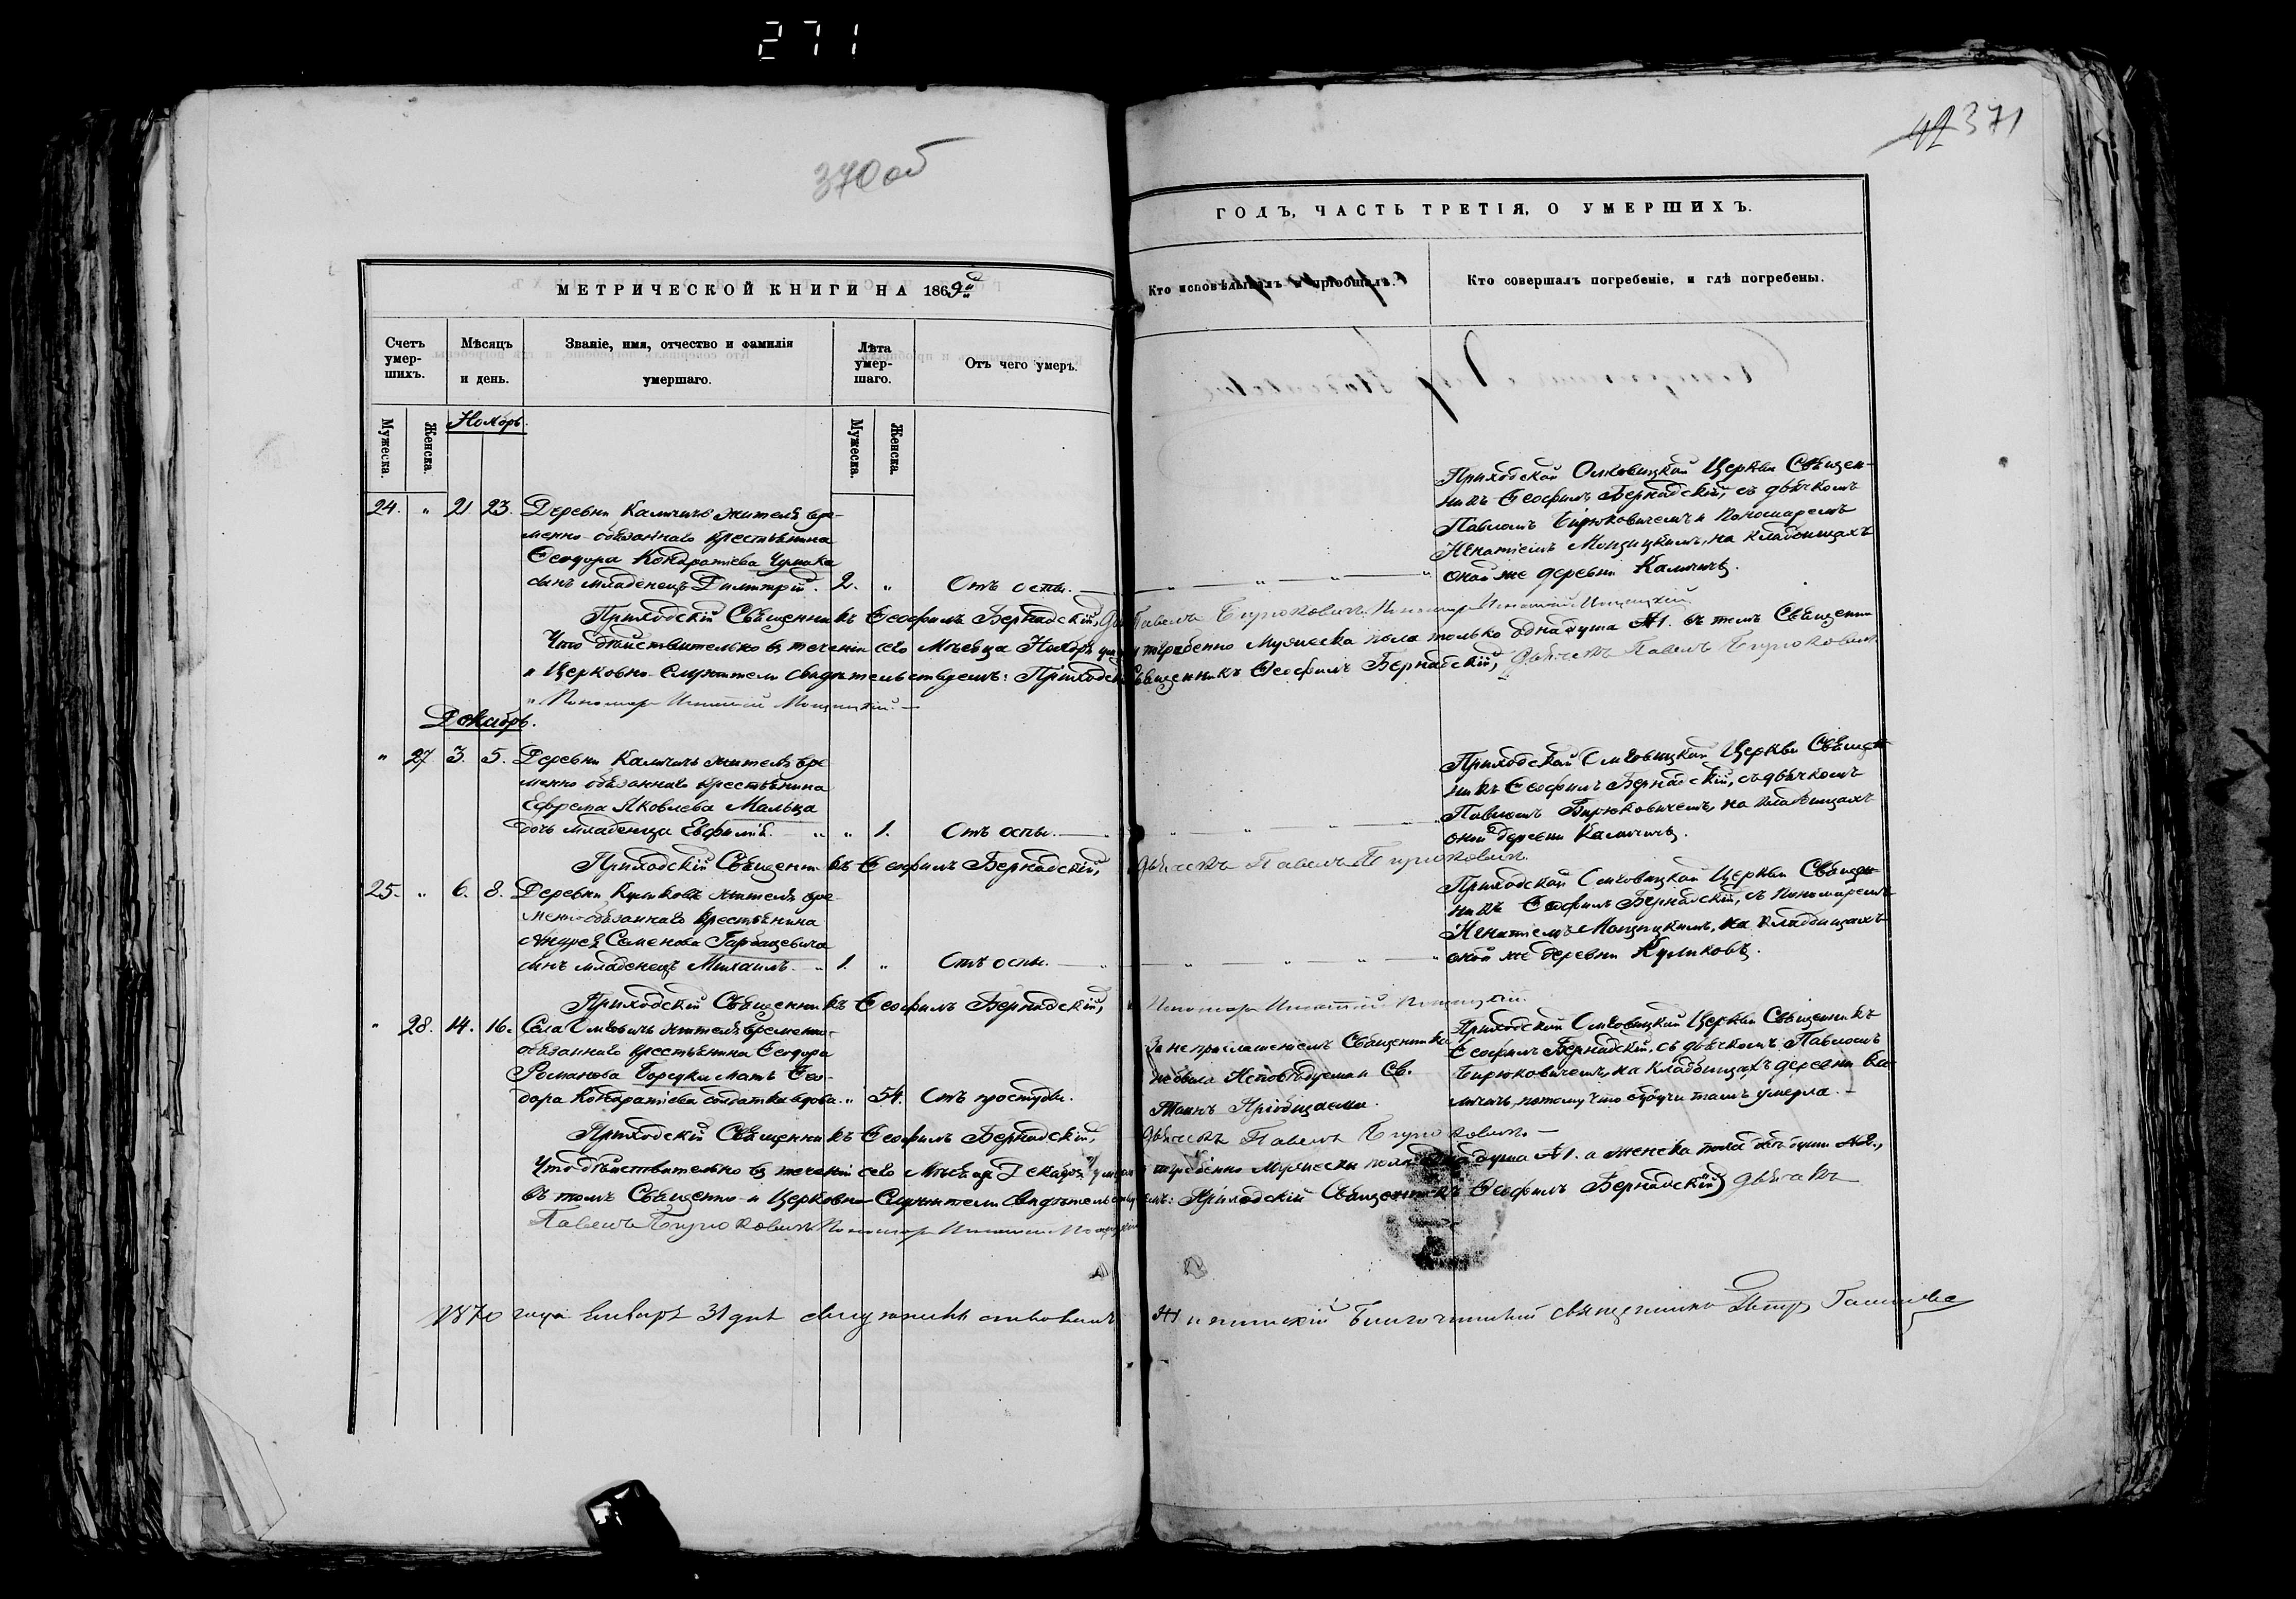 271
370об
42 371
МЕТРИЧЕСКОЙ КНИГИ НА 1869й
ГОДЪ, ЧАСТЬ ТРЕТІЯ, О УМЕРШИХЪ.
Счетъ умер-шихъ.
Мѣсяцъ и день.
Званіе, имя, отчество и фамилія
умершаго.
Лѣта умер-шаго.
Отъ чего умеръ.
Кто исповѣдывалъ и пріобщалъ.
Кто совершалъ погребеніе, и гдѣ погребены.
Мужеска.
Женска.
Ноябрь.
Мужеска.
Женска.
24. " 21 23. Деревни Каминь жителя вре-
менно-обязаннаго крестьянина
Ѳеодора Кондратіева Чумака
сынъ младенецъ Димитрій. 2. " Отъ оспы.
Приходской Церкви Священ-
никъ Ѳеофилъ Бернадскій, съ дьячкомъ
Павломъ Бирюковичемъ и Пономаремъ
Игнатіемъ на кладбищахъ
оной же деревни
Приходскій Священникъ Ѳеофилъ Бернадскій, Павелъ Бирюковичъ Пономарь Игнатій
Что дѣйствительно въ теченіи сего Мѣсяца Ноября погребено Мужеска пола только одна душа №1. въ томъ Священно
и Церковно-Служители свидѣтельствуемъ: Приходскій Священникъ Ѳеофилъ Бернадскій, Дьячекъ Павелъ Бирюковичъ
Пономарь Игнатій
Декабрь.
" 27 3. 5. Деревни жителя вре
менно обязаннаго крестьянина
Ефрема Яковлева Мальца
дочь младенца Евфимія. " " 1. Отъ оспы.
Приходской Церкви Священ
никъ Ѳеофилъ Бернадскій, съ дьячкомъ
Павломъ Бирюковичемъ, на кладбищахъ
оной деревни
Приходскій Священникъ Ѳеофилъ Бернадскій, Дьячекъ Павелъ Бирюковичъ
25. " 6. 8. Деревни Куликовъ жителя вре-
менно-обязаннаго крестьянина
Андрея Семенова Гарбацевича
сынъ младенецъ Михаилъ. " 1. " Отъ оспы.
Приходской Церкви Священ-
никъ Ѳеофилъ Бернадскій, съ Пономаремъ
Игнатіемъ на кладбищахъ
оной же деревни Куликовъ.
Приходскій Священникъ Ѳеофилъ Бернадскій, Пономарь Игнатій
" 28. 14. 16. Села жителя временно-
обязаннаго крестьянина Ѳеодора
Романова Мать Ѳео-
дора Кондратіева солдатка вдова. " 54. Отъ простуды.
За не приглашеніемъ Священника
небыла Исповѣдуема и Св.
Таинъ Пріобщаема.
Приходскій Церкви Священникъ
Ѳеофилъ Бернадскій, съ дьячкомъ Павломъ
Бирюковичемъ, на кладбищахъ деревни
потому что будучи тамъ умерла.
Приходскій Священникъ Ѳеофилъ Бернадскій, Дьячекъ Павелъ Бирюковичъ
Что дѣйствительно въ теченіи сего Мѣсяца Декабря погребено Мужеска пола душа №1. а женска пола двѣ души №2.,
въ томъ Священно-и Церковно-Служители Свидѣтельствуемъ: Приходскій Священникъ Ѳеофилъ Бернадскій, Дьячекъ
Павелъ Бирюковичъ Пономарь Игнатій
1870 года Января 31 дня Благочинный священникъ Петръ